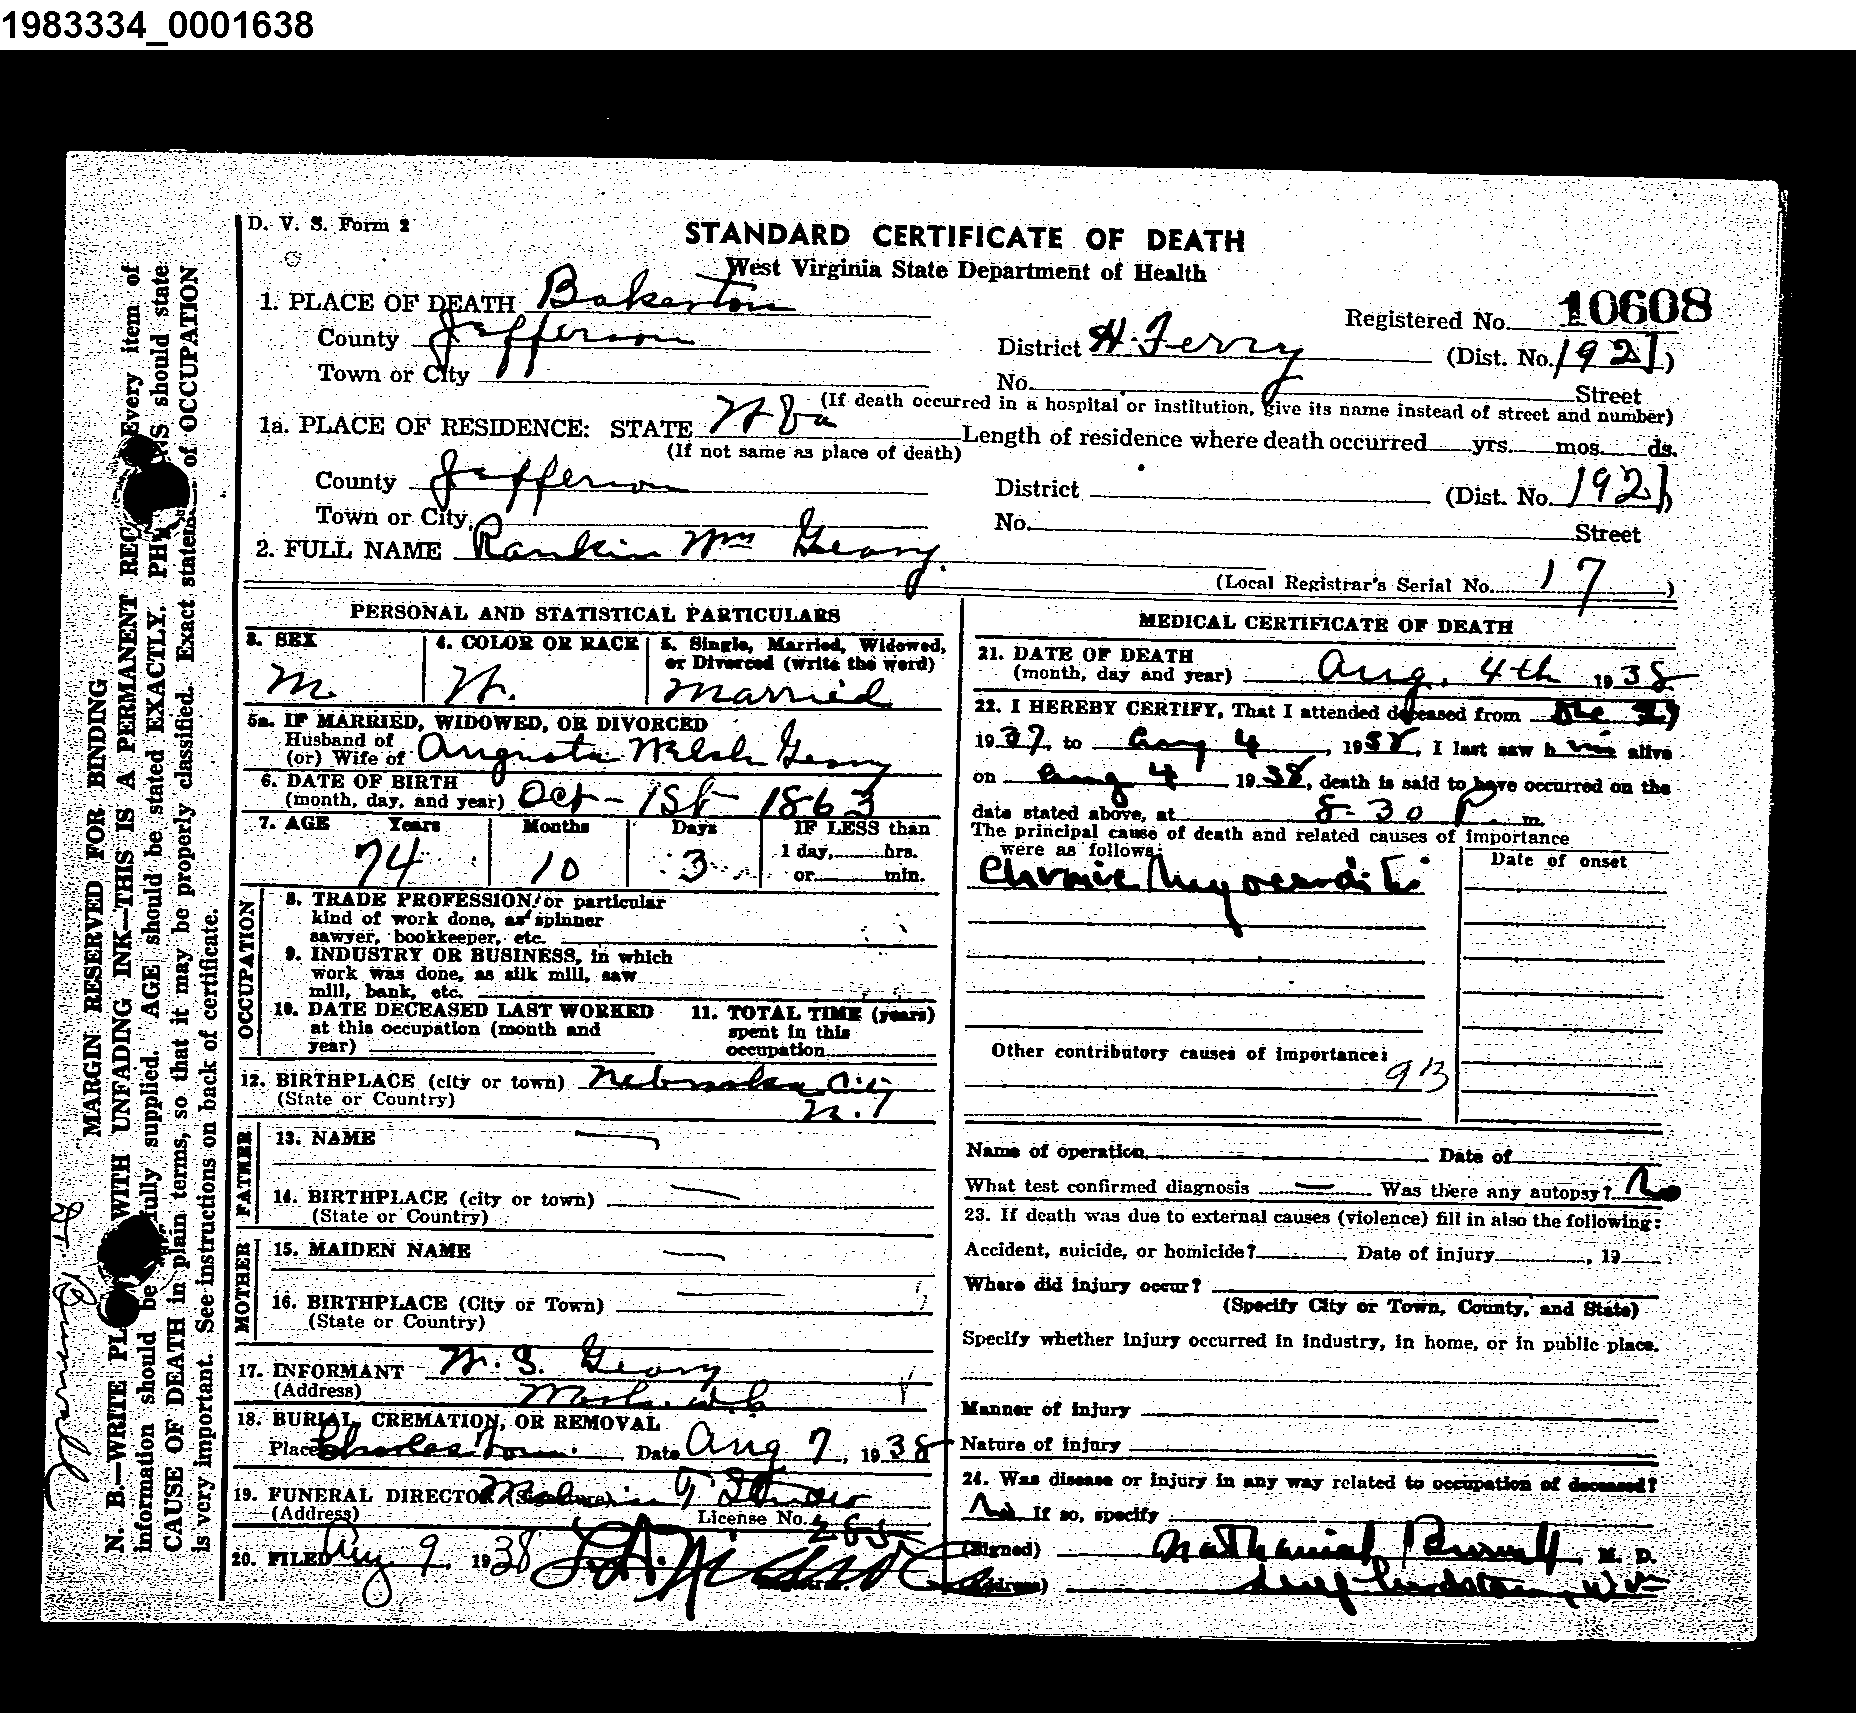 1983334_0001638
D. V. S. Form 2
STANDARD CERTIFICATE OF DEATH
West Virginia State Department of Health
1. PLACE OF DEATH Bakerton
Registered No. 10608
County Jefferson
District H. Ferry (Dist. No. 1921)
Town or City
No. Street
(If death occurred in a hospital or institution, give its name instead of street and number)
1a. PLACE OF RESIDENCE: STATE W Va Length of residence where death occurred yrs. mos. ds.
(If not same as place of death)
County Jefferson
District (Dist. No. 1921)
Town or City
No. Street
2. FULL NAME Rankin Wm Geary.
(Local Registrar's Serial No. 17 )
PERSONAL AND STATISTICAL PARTICULARS
3. SEX
M
4. COLOR OR RACE
W.
5. Single, Married, Widowed,
or Divorced (write the word)
Married
5a. IF MARRIED, WIDOWED, OR DIVORCED
Husband of
(or) Wife of Augusta Welsh Geary
6. DATE OF BIRTH
(month, day, and year) Oct - 1st 1863
7. AGE Years Months Days IF LESS than
74 10 3 1 day, hrs.
or min.
OCCUPATION
8. TRADE PROFESSION, or particular
kind of work done, as spinner
sawyer, bookkeeper, etc.
9. INDUSTRY OR BUSINESS, in which
work was done, as silk mill, saw
mill, bank, etc.
10. DATE DECEASED LAST WORKED
at this occupation (month and
year)
11. TOTAL TIME (years)
spent in this
occupation
12. BIRTHPLACE (city or town) Nebraska City
(State or Country) N.T
FATHER
13. NAME —
14. BIRTHPLACE (city or town) —
(State or Country)
MOTHER
15. MAIDEN NAME —
16. BIRTHPLACE (City or Town) —
(State or Country)
17. INFORMANT W. S. Geary
(Address) Wash. D.C
18. BURIAL, CREMATION, OR REMOVAL
Place Charles Town Date Aug 7, 1938
19. FUNERAL DIRECTOR (Signature)
(Address) License No.
20. FILED Aug 9, 1938
Registrar.
MEDICAL CERTIFICATE OF DEATH
21. DATE OF DEATH
(month, day and year) Aug. 4th 1938
22. I HEREBY CERTIFY, That I attended deceased from Dec 27
1937, to Aug 4, 1938, I last saw him alive
on Aug 4 1938, death is said to have occurred on the
date stated above, at 8-30 P. m.
The principal cause of death and related causes of importance
were as follows:
Date of onset
Chronic Myocarditis
Other contributory causes of importance:
93
Name of operation Date of
What test confirmed diagnosis — Was there any autopsy? No
23. If death was due to external causes (violence) fill in also the following:
Accident, suicide, or homicide? Date of injury , 19
Where did injury occur?
(Specify City or Town, County, and State)
Specify whether injury occurred in industry, in home, or in public place.
Manner of injury
Nature of injury
24. Was disease or injury in any way related to occupation of deceased?
No If so, specify
(Signed) Nathaniel Burwell, M. D.
(Address)
MARGIN RESERVED FOR BINDING
N. B.—WRITE PL WITH UNFADING INK—THIS IS A PERMANENT REC Every item of
information should be fully supplied. AGE should be stated EXACTLY. PHY NS should state
CAUSE OF DEATH in plain terms, so that it may be properly classified. Exact statem of OCCUPATION
is very important. See instructions on back of certificate.